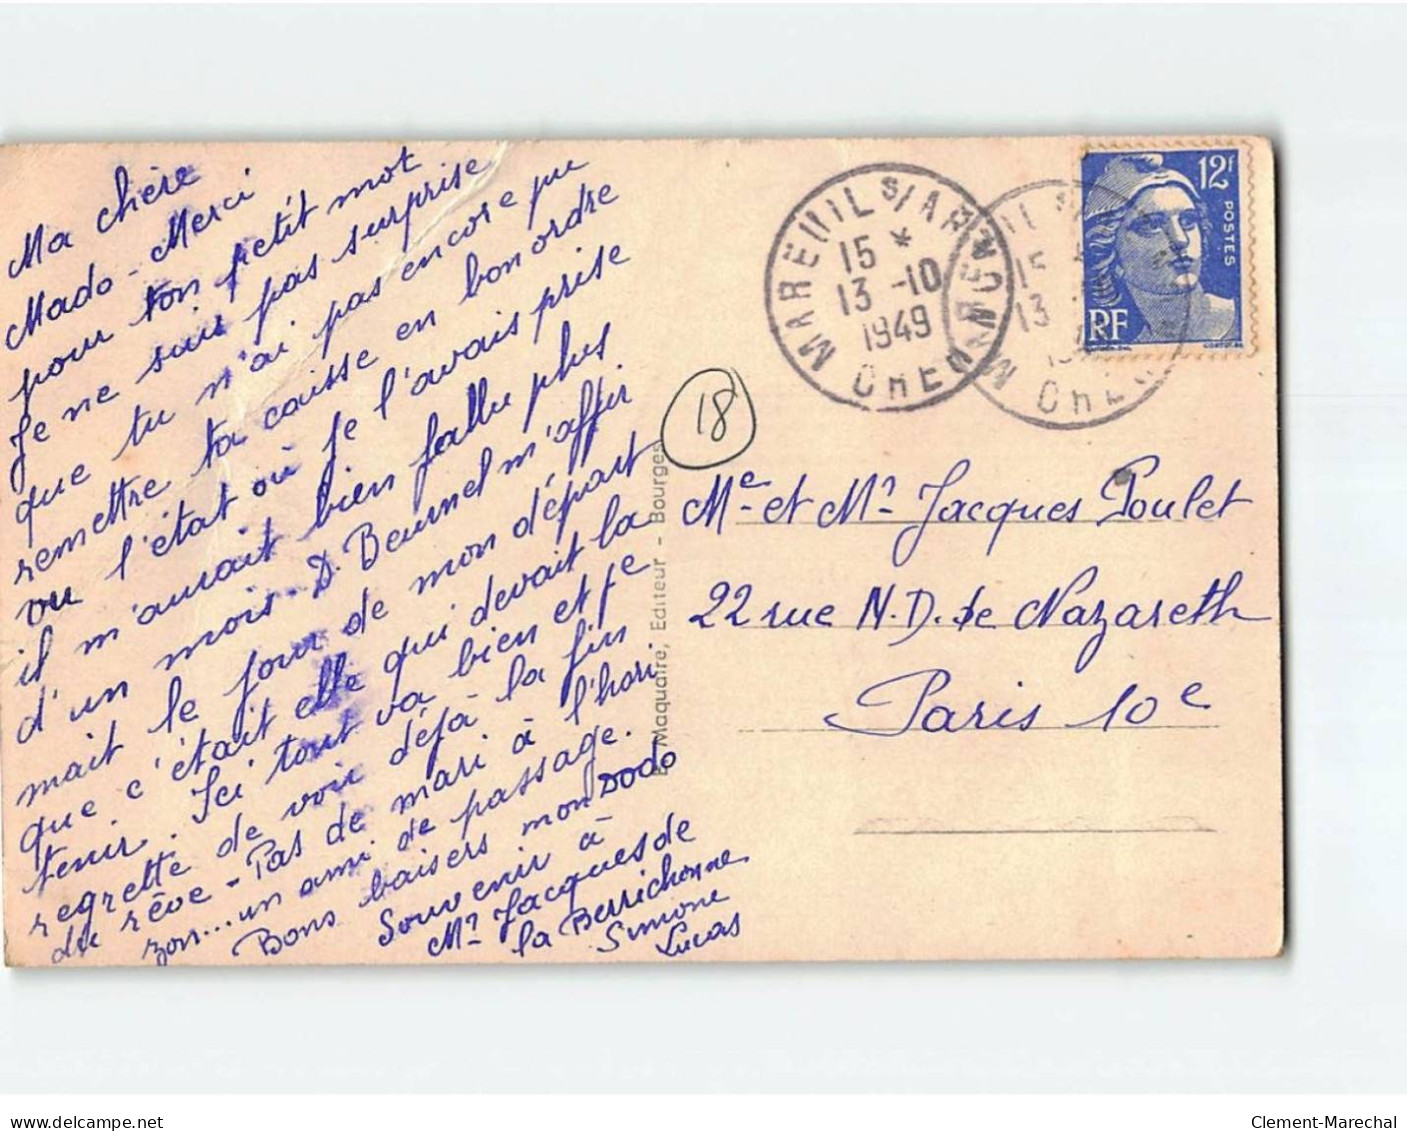 Ma chère
Mado - Merci
pour ton petit mot
Je ne suis pas surprise
que tu n'ai pas encore pu
remettre ta caisse en bon ordre
vu l'état où je l'avais prise
il m'aurait bien fallu plus
d'un mois - D. Beurnel m'affir
mait le jour de mon départ
que c'était elle qui devait la
tenir. Ici tout va bien et je
regrette de voir déjà la fin
du rêve - Pas de mari à l'hori
zon... un ami de passage.
Bons baisers mon Dodo
Souvenir à
Mr Jacques de
la Berrichonne
Simone
Lucas
E. Maquaire, Editeur - Bourges
18
MAREUIL S/ARNON
15 *
13 -10
1949
CHER
15
13
12F
POSTES
RF
Me et Mr Jacques Poulet
22 rue N.D. de Nazareth
Paris 10e
www.delcampe.net
Clement-Marechal